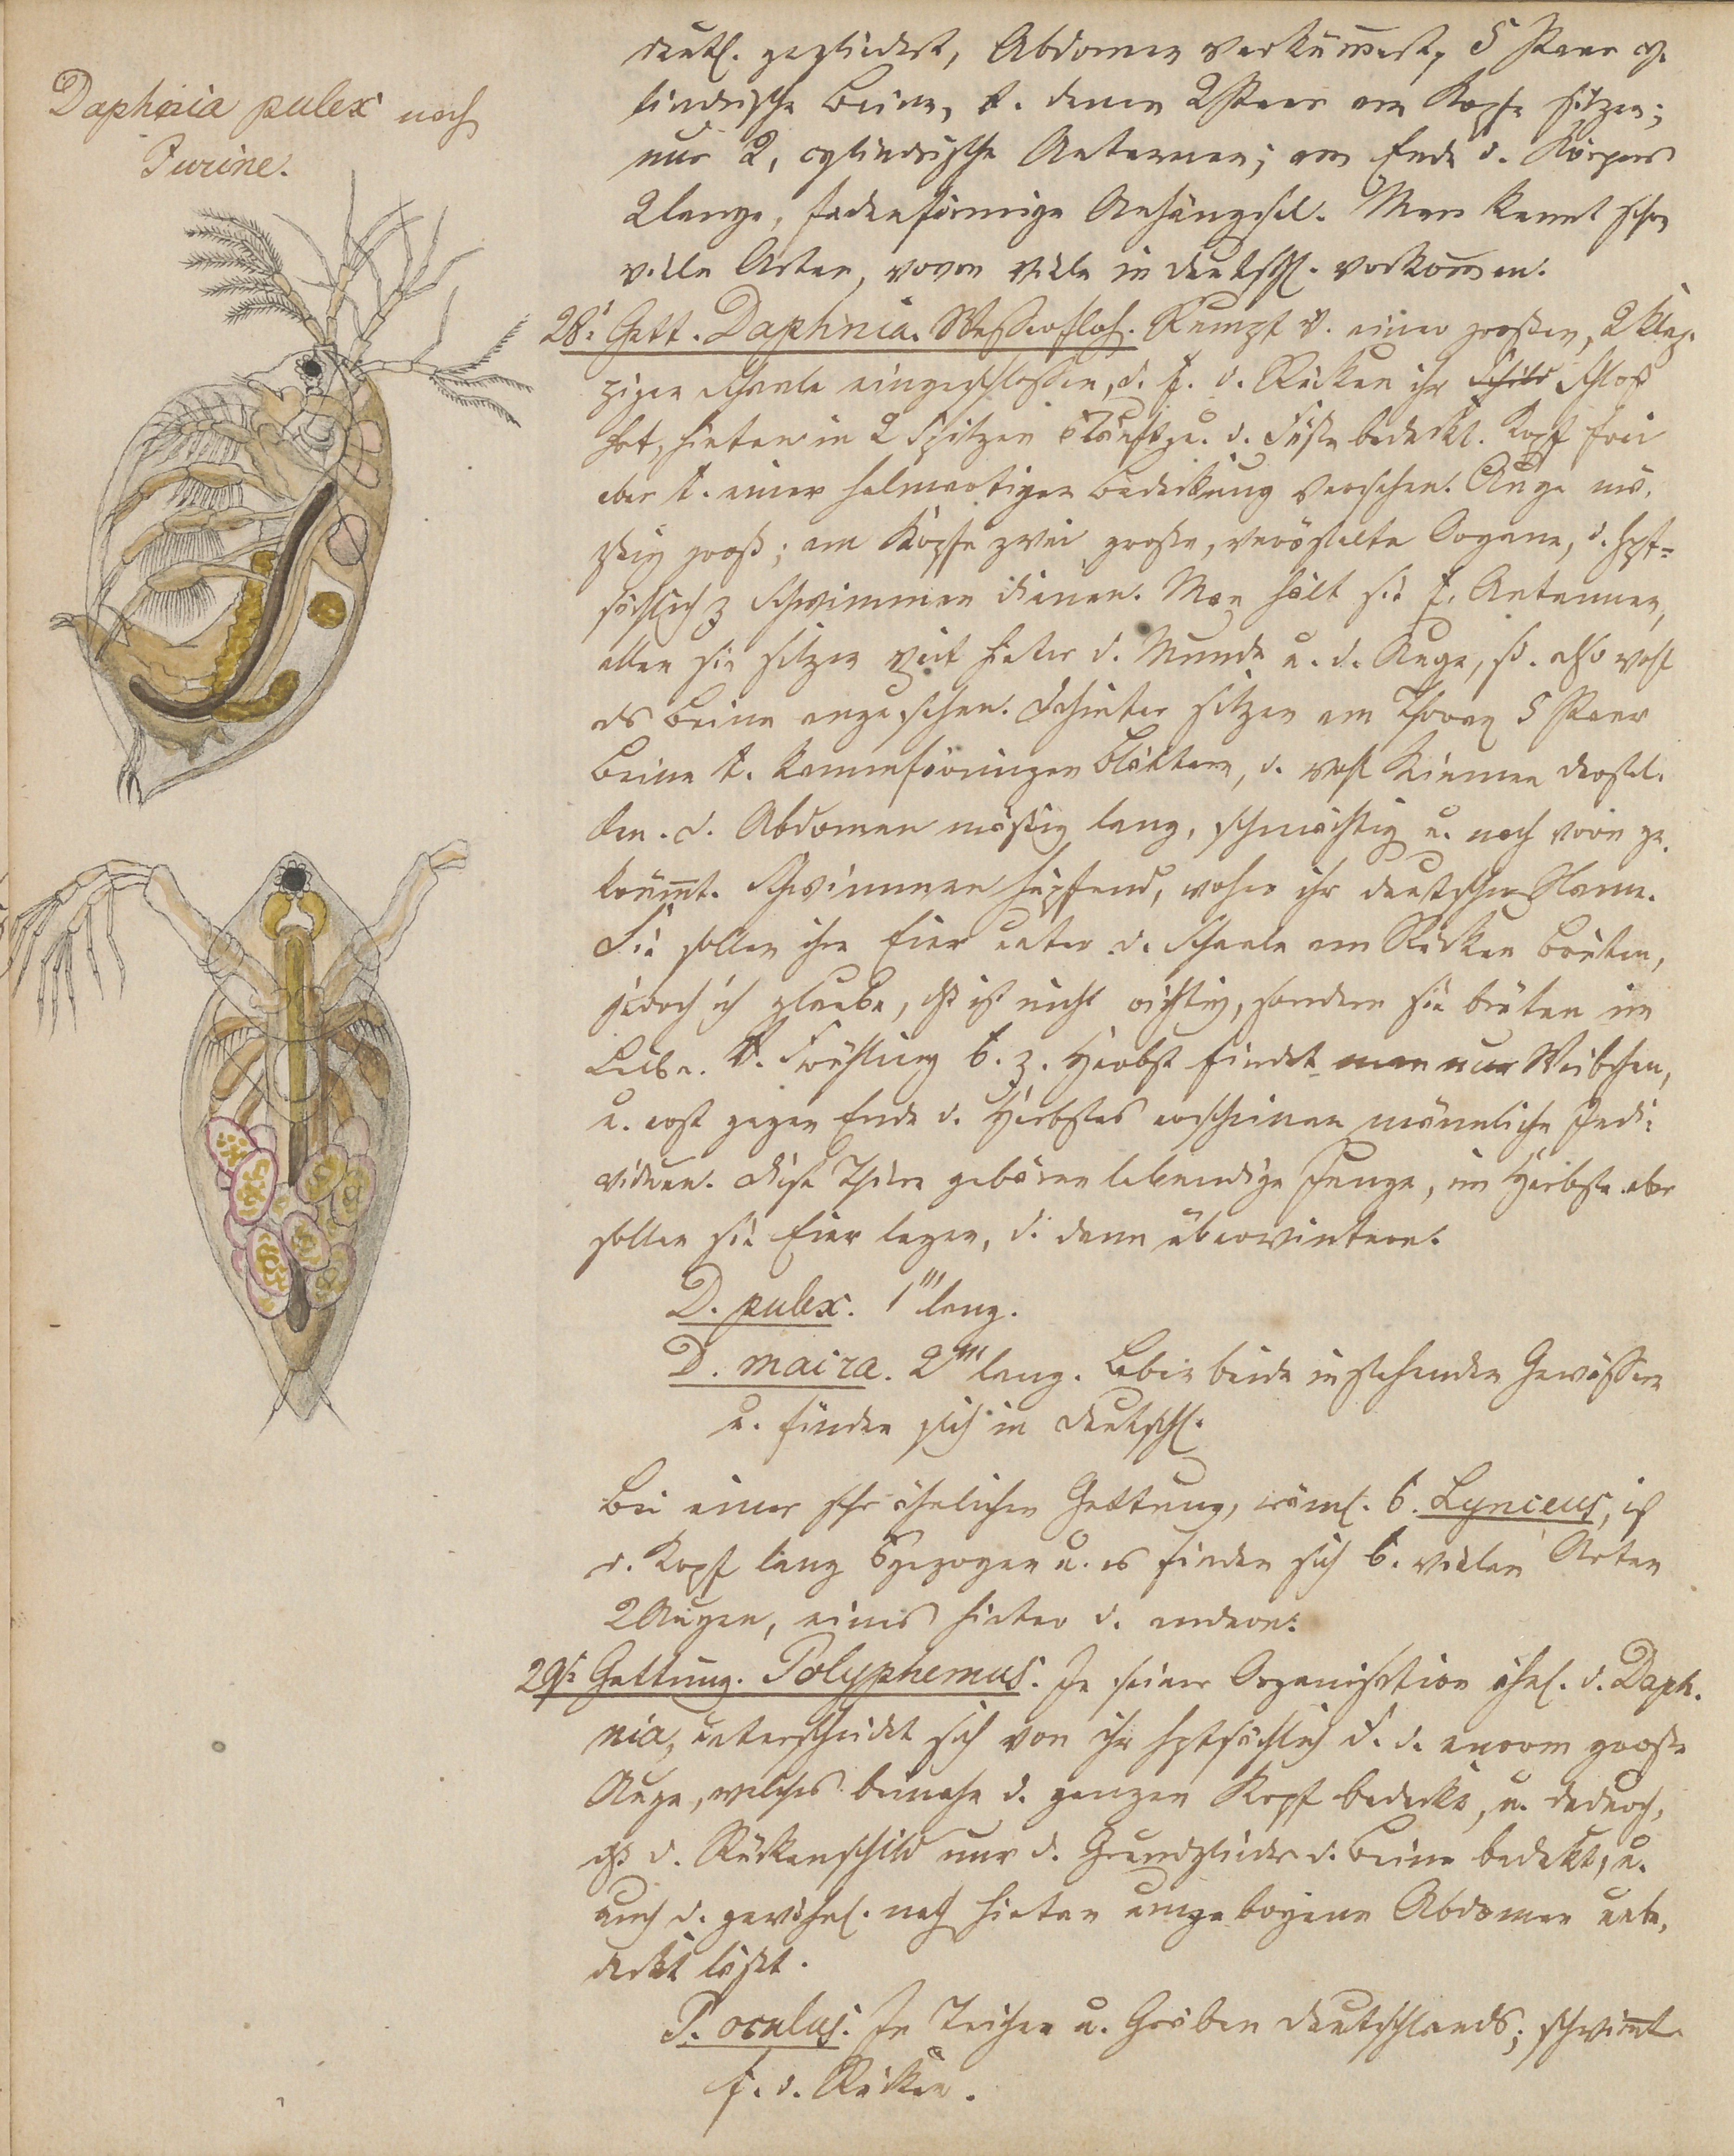 Daphnia pulex nach
Jurine.
deutl. gegliedert, Abdomen verkümmert, 5 Paar cy-
lindrische Beine, v. denen 2 Paar am Kopfe sitzen;
nur 2, cylindrische Antennen; am Ende d. Körpers
2 lange, fadenförmige Anhängsel. Man kennt schon
viele Arten, wovon viele in Deutschl. vorkommen.
28. Gatt. Daphnia. Wasserfloh. Rumpf v. einer großen, 2 klap-
pigen Schaale eingeschlossen, d. f. d. Rücken ihr Schloß
hat, hinten in 2 Spitzen ausläuft u. d. Füße bedeckt. Kopf frei
aber v. einer helmartigen Bedeckung versehen. Auge mä-
ßig groß; am Kopfe zwei große, verästelte Organe, d. hpt-
sächlich z Schwimmen dienen. Man hält sie f. Antennen,
allein sie sitzen weit hinter d. Munde u. d. Auge, sd. also wohl
als Beine anzusehen. Dahinter sitzen am Thorax 5 Paar
Beine v. kammförmigen Blättern, d. wohl Kiemen darstel-
len. d. Abdomen mäßig lang, schmächtig u. nach vorn ge-
krümmt. Schwimmen hüpfend, woher ihr deutscher Name.
Sie sollen ihre Eier unter d. Schaale am Rücken brüten,
jedoch ich glaube, dß ist nicht richtig, sondern sie brüten im
Leibe. V. Frühling b. z. Herbst findet man nur Weibchen,
u. erst gegen Ende d. Herbstes erscheinen männliche Indi-
viduen. Diese Thiere gebären lebendige Junge, im Herbste aber
sollen sie Eier legen, d. dann überwintern.
D. pulex. 1''' lang.
D. maira. 2''' lang. Leben beide in stehenden Gewässern
u. finden sich in Deutschl.
Bei einer sehr ähnlichen Gattung, näml. b. Lynceus, ist
d. Kopf lang gezogen u. es finden sich b. vielen Arten
2 Augen, eines hinter d. andern.
29. Gattung. Polyphemus. In seiner Organisation ähnl. d. Daph-
nia, unterscheidet sich von ihr hptsächlich d. d. enorm große
Auge, welches beinahe d. ganzen Kopf bedeckt, u. dadurch,
dß d. Rückenschild nur d. Grundglieder d. Beine bedekt, u.
auch d. gewöhnl. nach hinten umgebogene Abdomen unbe-
deckt läßt.
P. oculus. In Teichen u. Gräben Deutschlands; schwimmt
f. d. Rücken.